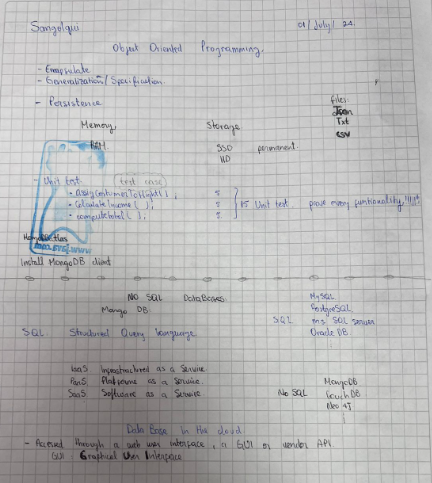 Sangolqui 01/July/24
Object Oriented Programming.
- Encapsulate
- Generalization / Specification.
- Persistence
Files:
Json
Txt
CSV
Memory
RAM
Storage
SSD permanent.
HD
- Unit test (test case)
• assignCostumerToFlight( ); 5
• calculateIncome( ); 5
• computeTotal( ); 5
15 Unit test. prove every funtionality!!!!
Install MongoDB client
NO SQL DataBases
Mongo DB.
SQL. Structured Query language
SQL
MySQL
PostgreSQL
ms SQL server
Oracle DB.
IaaS Infrastructured as a Service
PaaS Platforms as a Service.
SaaS Software as a Service
No SQL
MongoDB
CouchDB
Neo 4J
Data Base in the cloud
- Accesed through a web user interface, a GUI or vendor API.
GUI: Graphical User Interface